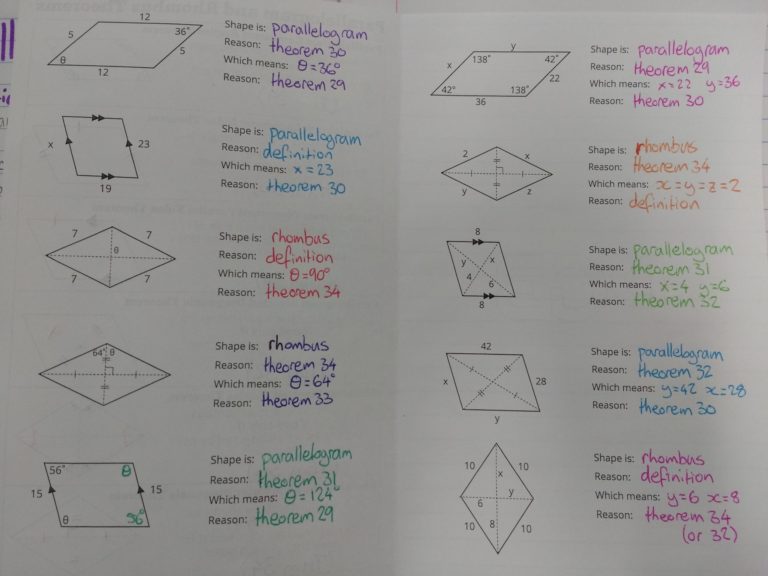 12
5
36°
5
θ
12
Shape is: parallelogram
Reason: theorem 30
Which means: θ = 36°
Reason: theorem 29
x
23
19
Shape is: parallelogram
Reason: definition
Which means: x = 23
Reason: theorem 30
7
7
θ
7
7
Shape is: rhombus
Reason: definition
Which means: θ = 90°
Reason: theorem 34
64° θ
Shape is: rhombus
Reason: theorem 34
Which means: θ = 64°
Reason: theorem 33
56°
θ
15
15
θ
56°
Shape is: parallelogram
Reason: theorem 31
Which means: θ = 124°
Reason: theorem 29
y
x
138°
42°
22
42°
138°
36
Shape is: parallelogram
Reason: theorem 29
Which means: x = 22 y = 36
Reason: theorem 30
2
x
y
z
Shape is: rhombus
Reason: theorem 34
Which means: x = y = z = 2
Reason: definition
8
y
x
4
6
8
Shape is: parallelogram
Reason: theorem 31
Which means: x = 4 y = 6
Reason: theorem 32
42
x
28
y
Shape is: parallelogram
Reason: theorem 32
Which means: y = 42 x = 28
Reason: theorem 30
10
10
x
y
6
8
10
10
Shape is: rhombus
Reason: definition
Which means: y = 6 x = 8
Reason: theorem 34
(or 32)